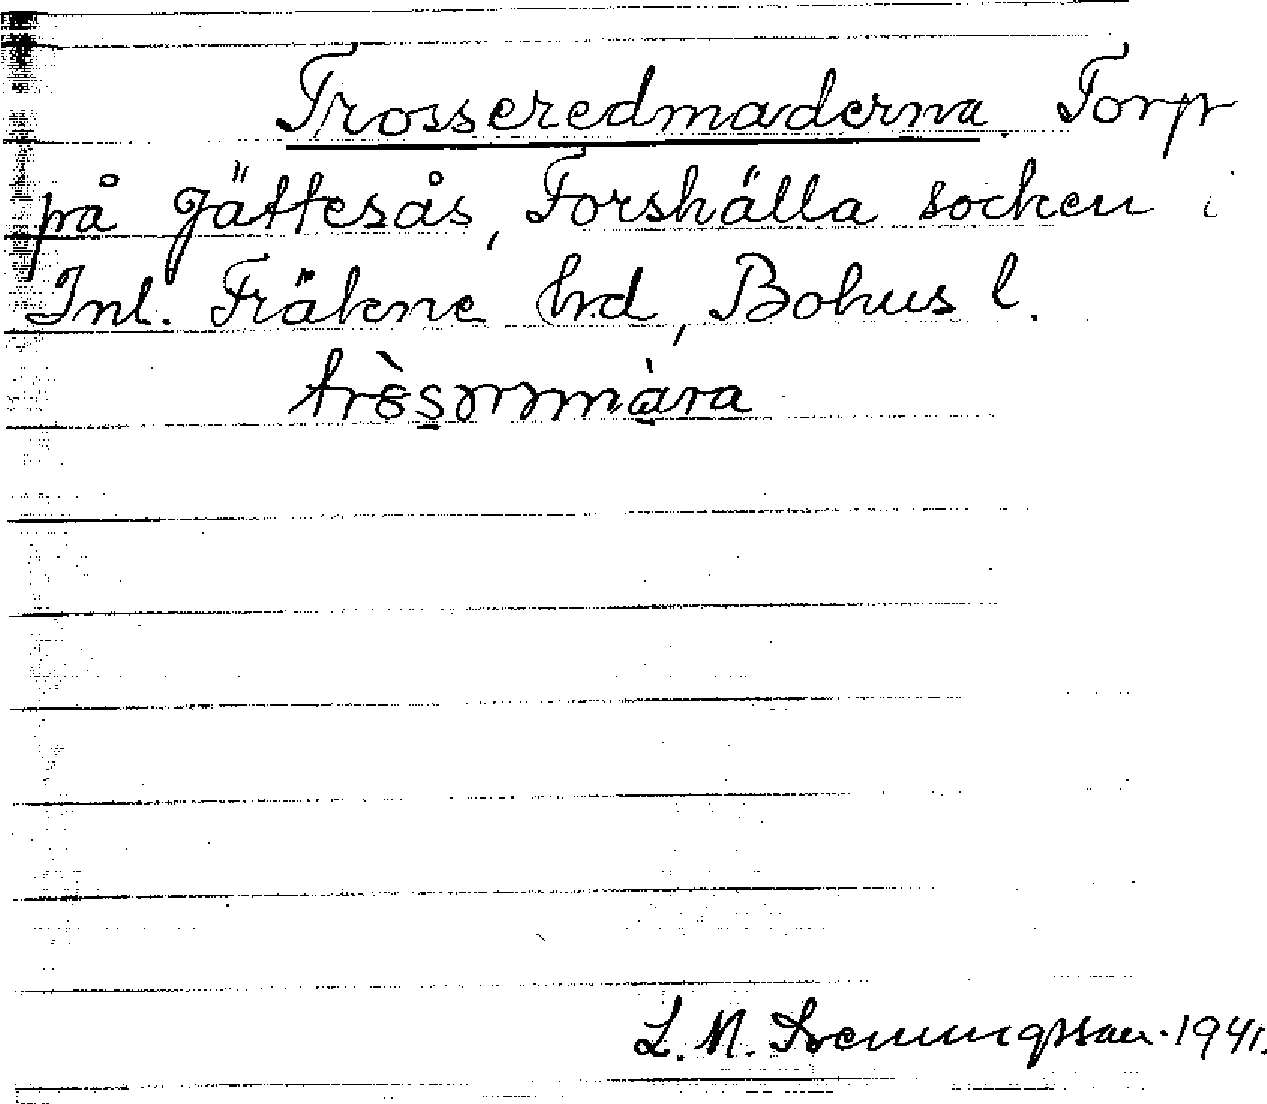 Trosseredmaderna. Torp
på Jättesås, Forshälla socken i
Inl. Fräkne hrd, Bohus l.
L. M. Svenungsson. 1941.